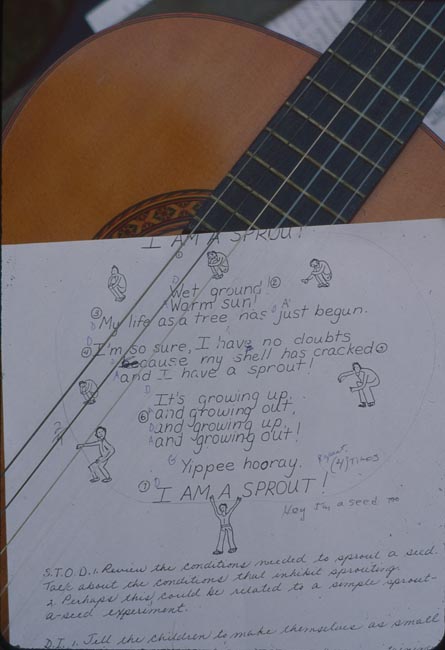 I AM A SPROUT!
① D
D ②
Wet ground!
A Warm sun! D A'
③
D My life as a tree has just begun.
D ④ I'm so sure, I have no doubts
because my shell has cracked ⑤
A and I have a sprout!
D It's growing up,
⑥ A and growing out,
D and growing up,
A and growing out!
G Yippee hooray. Repeat (4) times
⑦ D I AM A SPROUT!
Hey I'm a seed no
S.T.O.D. 1. Review the conditions needed to sprout a seed.
Talk about the conditions that inhibit sprouting.
2. Perhaps this could be related to a simple sprout-
a-seed experiment.
D.T. 1. Tell the children to make themselves as small